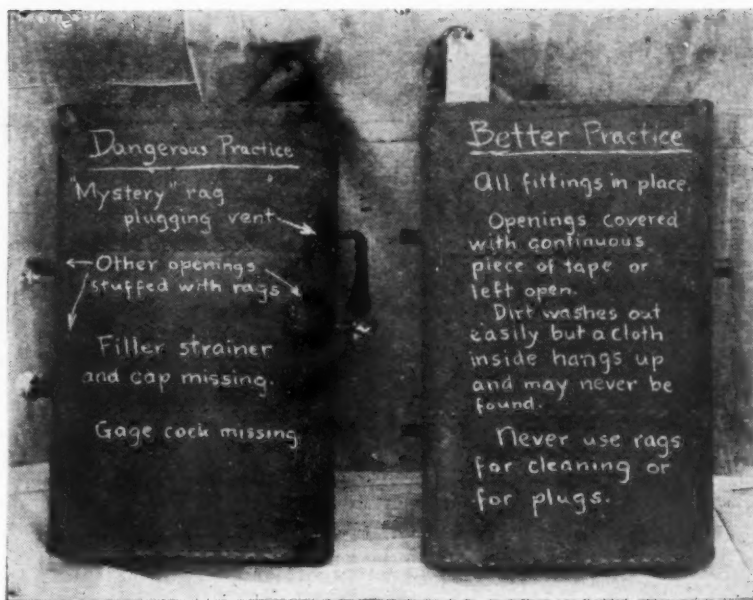 Dangerous Practice
"Mystery" rag
plugging vent
Other openings
stuffed with rags
Filler strainer
and cap missing.
Gage cock missing
Better Practice
All fittings in place.
Openings covered
with continuous
piece of tape or
left open.
Dirt washes out
easily but a cloth
inside hangs up
and may never be
found.
Never use rags
for cleaning or
for plugs.